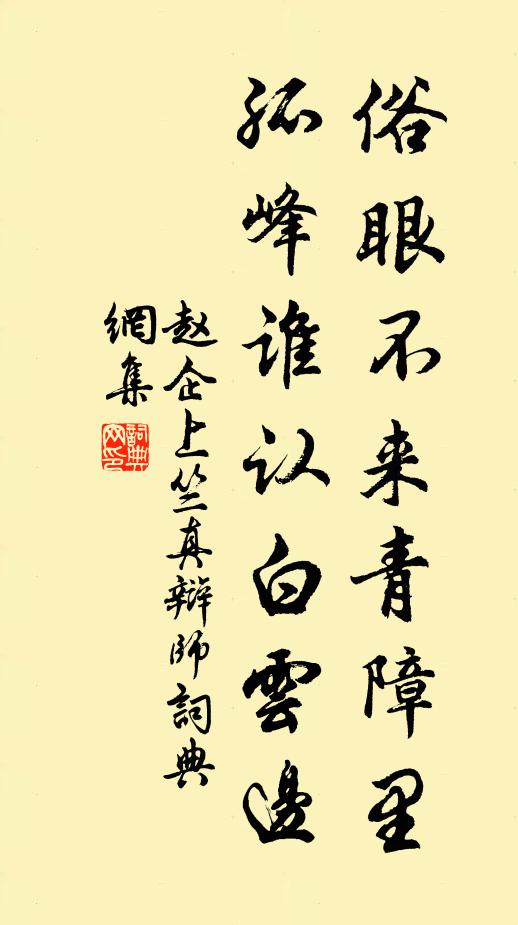 俗眼不来青障里
孤峰谁认白雲邊
赵企上竺真辩师詞典
網集
詞典
网印